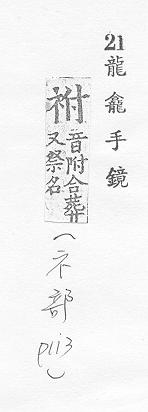 21 龍龕手鏡
祔 音附合葬
又祭名
(示部
p113)